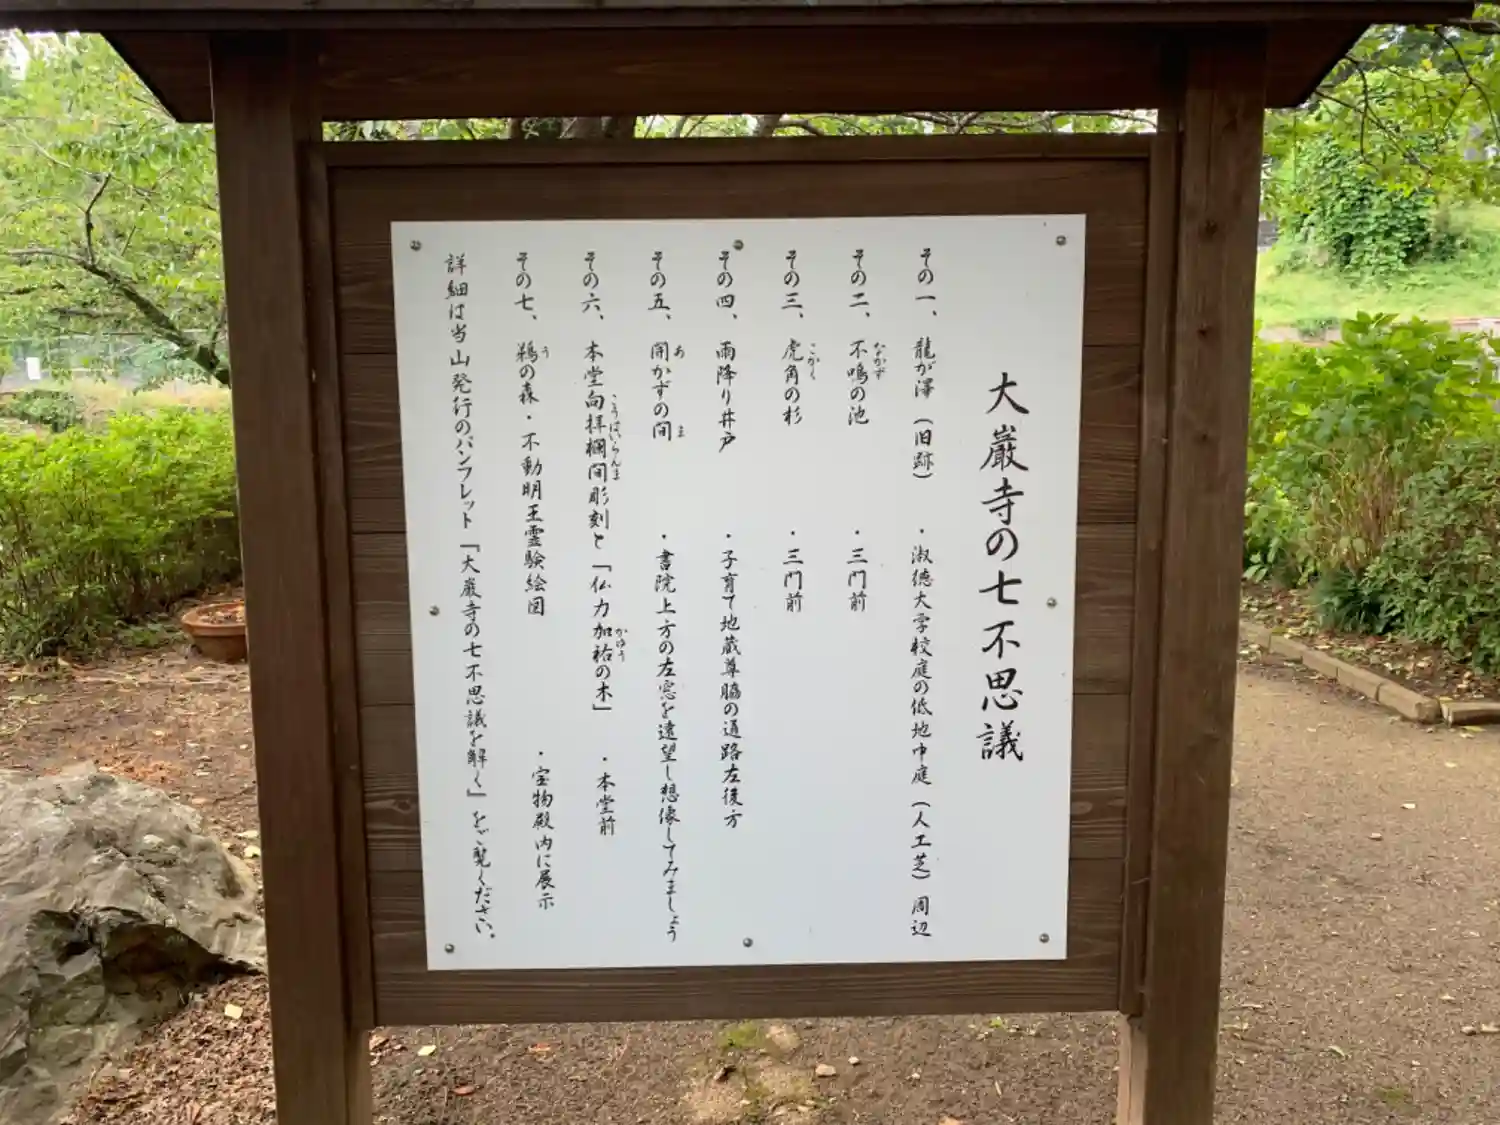 大巌寺の七不思議
その一、龍が澤（旧跡）・淑徳大学校庭の低地中庭（人工芝）周辺
その二、不鳴の池・三門前
なかず
その三、虎角の杉・三門前
こかく
その四、雨降り井戸・子育て地蔵尊脇の通路左後方
その五、開かずの間・書院上方の左窓を遠望し想像してみましょう
あ ま
その六、本堂向拝欄間彫刻と「仏力加祐の木」・本堂前
こうはいらんま かゆう
その七、鵜の森・不動明王霊験絵図・宝物殿内に展示
う
詳細は当山発行のパンフレット「大巌寺の七不思議を解く」をご覧ください。